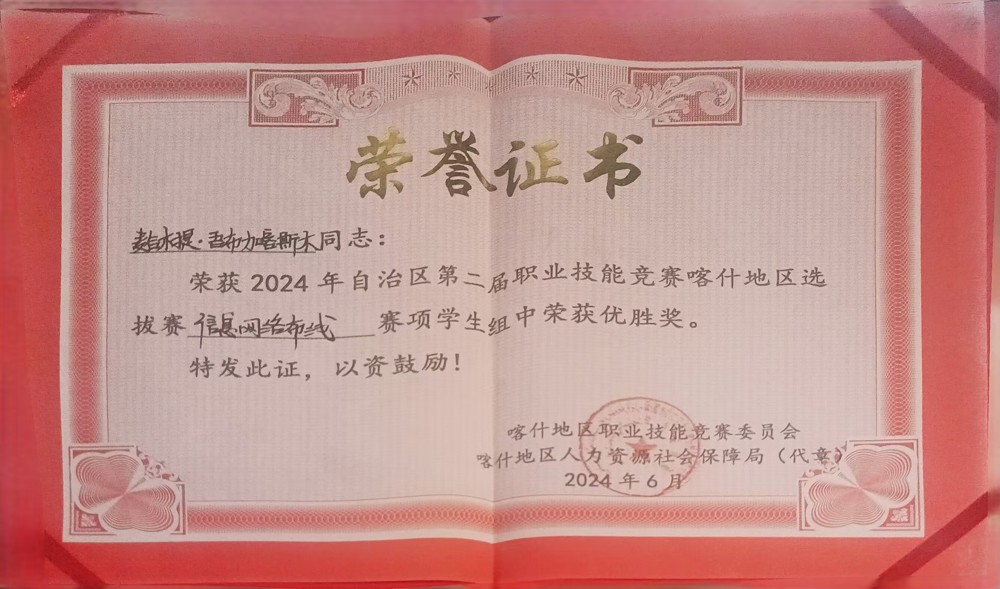 荣誉证书
麦合木提·吾布力喀斯木同志：
荣获2024年自治区第二届职业技能竞赛喀什地区选
拔赛信息网络布线赛项学生组中荣获优胜奖。
特发此证，以资鼓励！
喀什地区职业技能竞赛委员会
喀什地区人力资源社会保障局（代章）
2024年6月